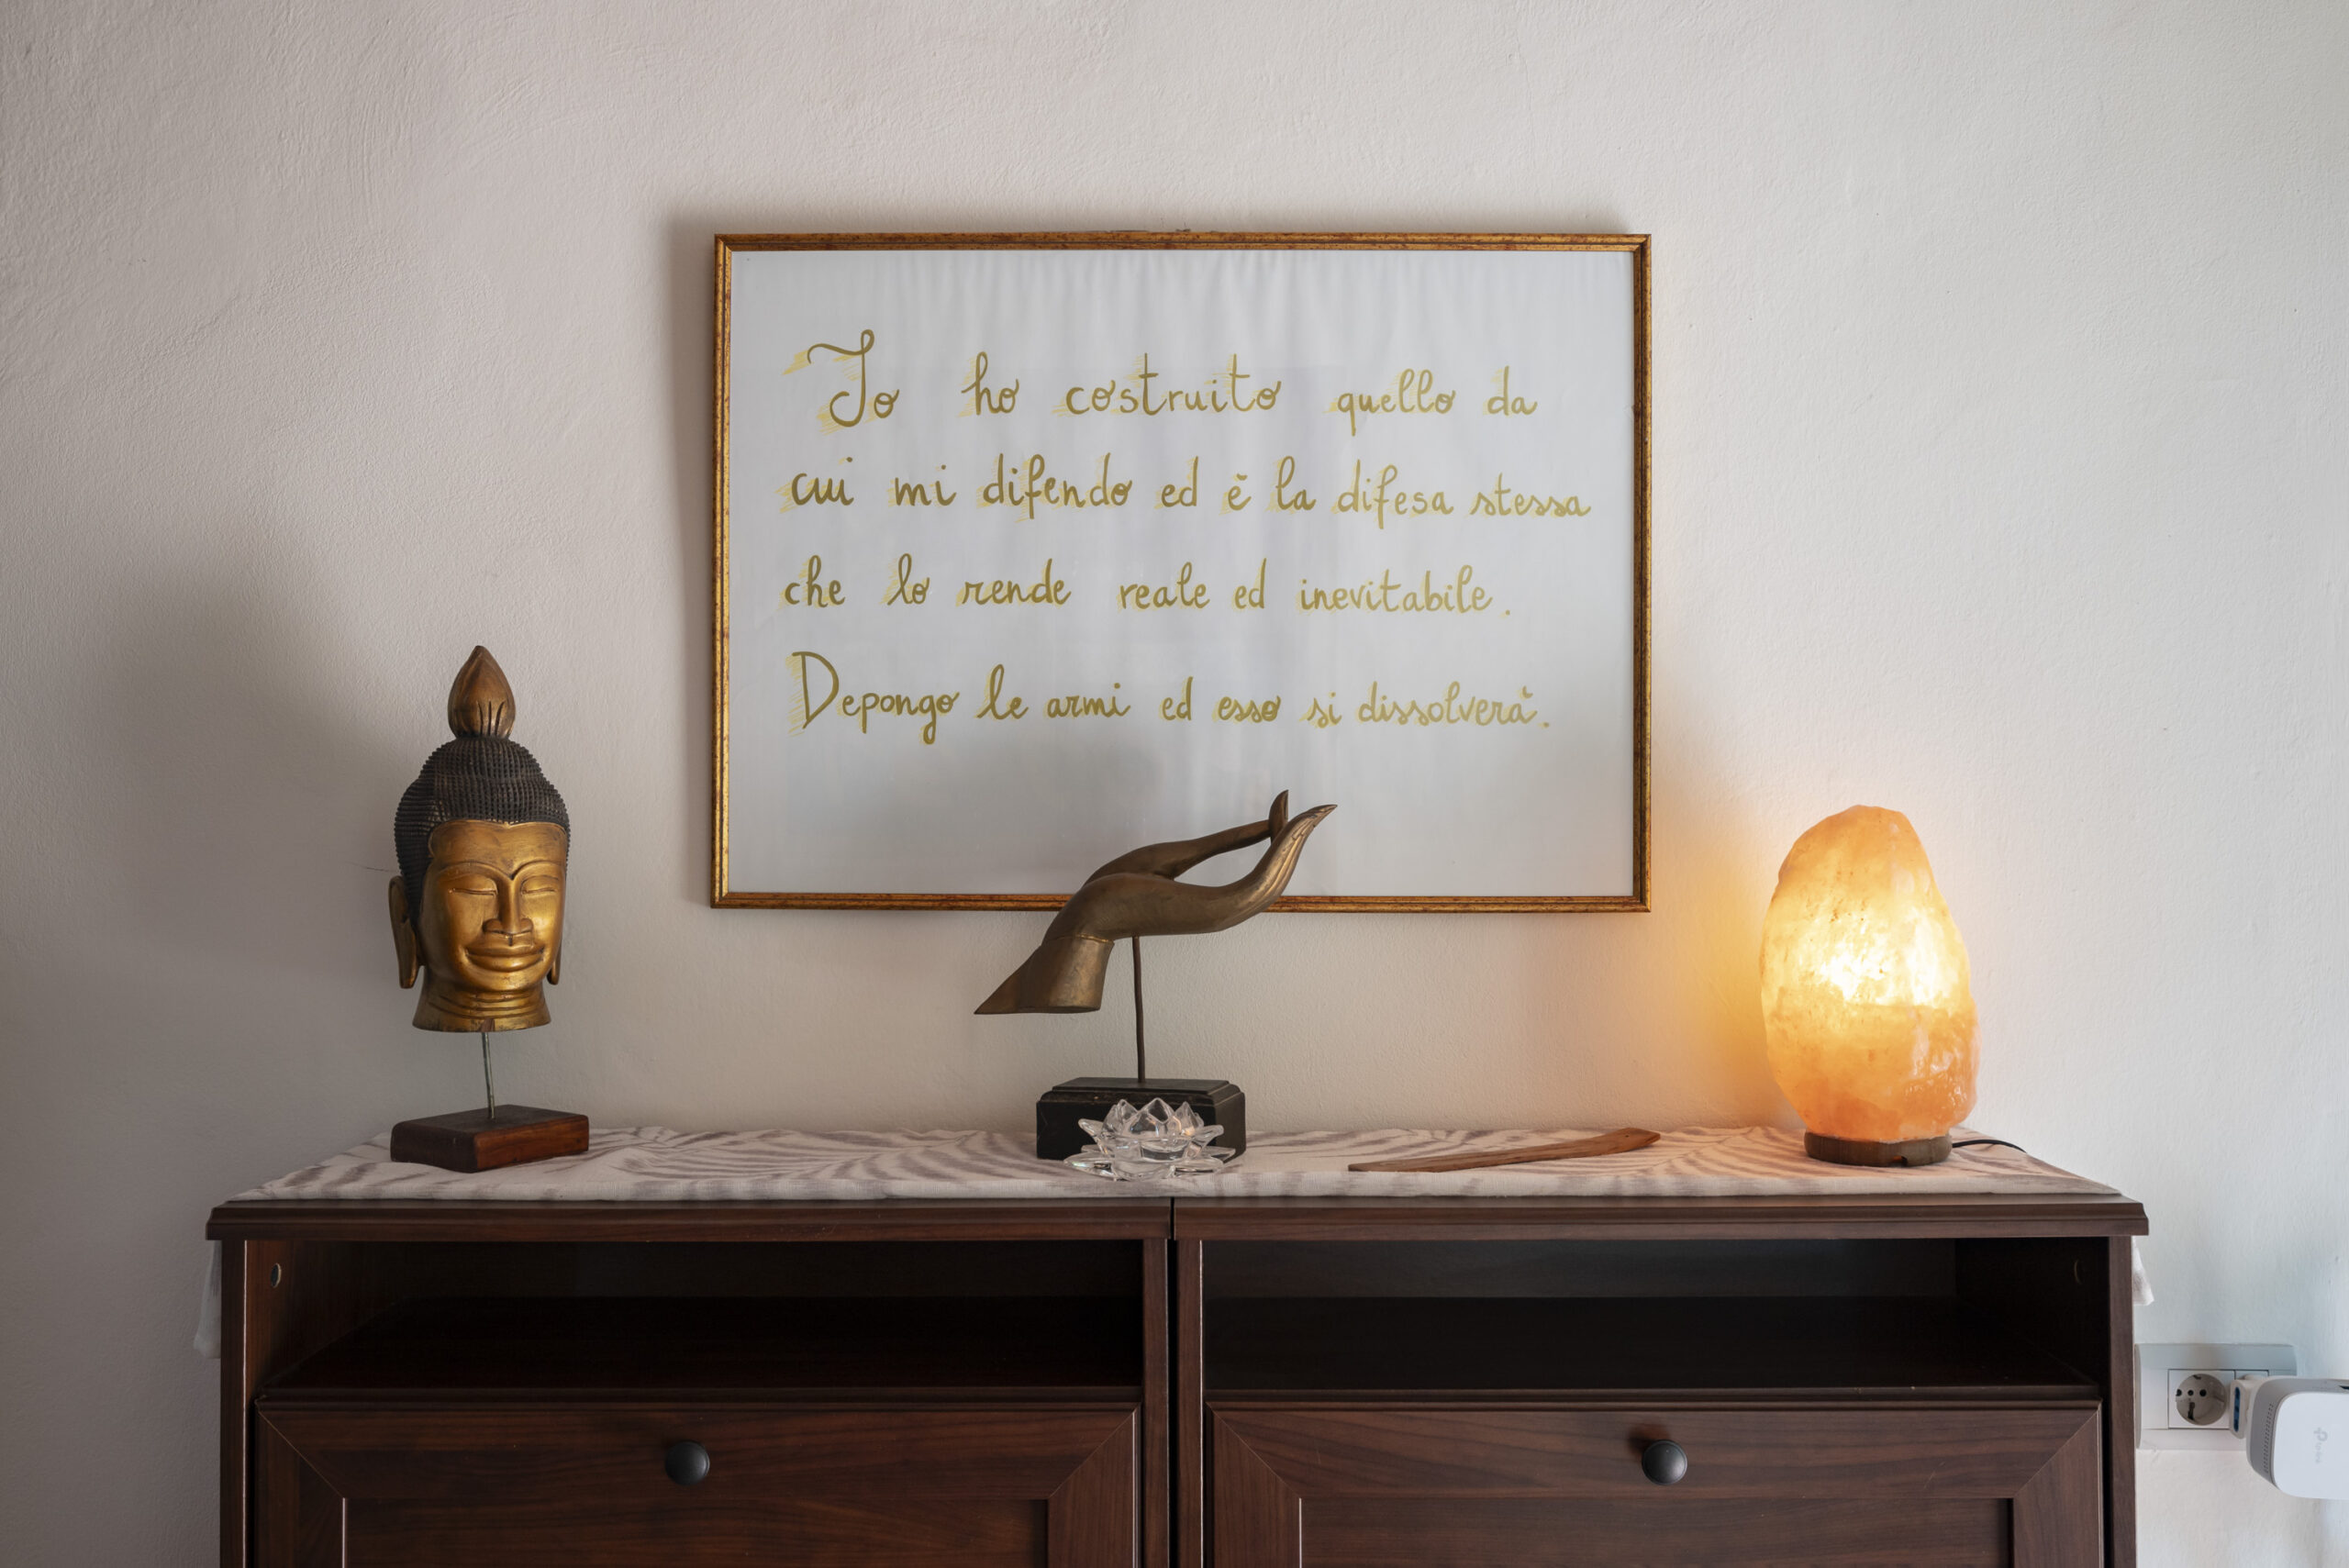 Io ho costruito quello da
cui mi difendo ed è la difesa stessa
che lo rende reale ed inevitabile.
Depongo le armi ed esso si dissolverà.